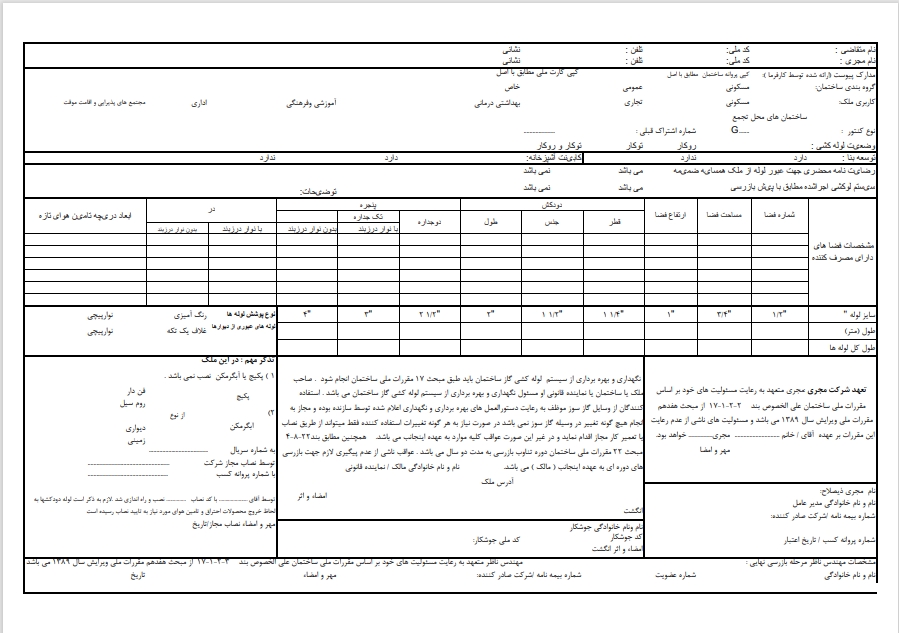 نام متقاضی : کد ملی: تلفن : نشانی
نام مجری : کد ملی: تلفن : نشانی
مدارک پیوست (ارائه شده توسط کارفرما ): کپی پروانه ساختمان مطابق با اصل کپی کارت ملی مطابق با اصل
گروه بندی ساختمان: مسکونی عمومی خاص
کاربری ملک: مسکونی تجاری بهداشتی درمانی آموزشی وفرهنگی اداری مجتمع های پذیرایی و اقامت موقت
ساختمان های محل تجمع
نوع کنتور : G---- شماره اشتراک قبلی : ----------
وضعیت لوله کشی : روکار توکار توکار و روکار
توسعه بنا : دارد ندارد کابینت آشپزخانه: دارد ندارد
رضایت نامه محضری جهت عبور لوله از ملک همسایه ضمیمه می باشد نمی باشد
سیستم لوکشی اجراشده مطابق با پیش بازرسی می باشد نمی باشد توضیحات:
مشخصات فضا های دارای مصرف کننده
شماره فضا مساحت فضا ارتفاع فضا
دودکش
قطر جنس طول
پنجره
دوجداره تک جداره
با نوار درزبند بدون نوار درزبند
در
با نوار درزبند بدون نوار درزبند
ابعاد دریچه تامین هوای تازه
سایز لوله " ۱/۲" ۳/۴" ۱" ۱ ۱/۴" ۱ ۱/۲" ۲" ۲ ۱/۲" ۳" ۴"
طول (متر)
طول کل لوله ها
نوع پوشش لوله ها رنگ آمیزی نوارپیچی
لوله های عبوری از دیوارها غلاف یک تکه نوارپیچی
تعهد شرکت مجری مجری متعهد به رعایت مسئولیت های خود بر اساس
مقررات ملی ساختمان علی الخصوص بند ۲-۲-۱-۱۷ از مبحث هفدهم
مقررات ملی ویرایش سال ۱۳۸۹ می باشد و مسئولیت های ناشی از عدم رعایت
این مقررات بر عهده آقای / خانم --------------- مجری---------- خواهد بود.
مهر و امضا
نام مجری ذیصلاح:
نام و نام خانوادگی مدیر عامل
شماره بیمه نامه /شرکت صادر کننده:
شماره پروانه کسب / تاریخ اعتبار
نگهداری و بهره برداری از سیستم لوله کشی گاز ساختمان باید طبق مبحث ۱۷ مقررات ملی ساختمان انجام شود . صاحب
ملک یا ساختمان یا نماینده قانونی او مسئول نگهداری و بهره برداری از سیستم لوله کشی گاز ساختمان می باشد . استفاده
کنندگان از وسایل گاز سوز موظف به رعایت دستورالعمل های بهره برداری و نگهداری اعلام شده توسط سازنده بوده و مجاز به
انجام هیچ گونه تغییر در وسیله گاز سوز نمی باشد در صورت نیاز به هر گونه تغییرات استفاده کننده فقط میتواند از طریق نصاب
یا تعمیر کار مجاز اقدام نماید و در غیر این صورت عواقب کلیه موارد به عهده اینجانب می باشد. همچنین مطابق بند۲۲-۸-۴
مبحث ۲۲ مقررات ملی ساختمان دوره تناوب بازرسی به مدت دو سال می باشد . عواقب ناشی از عدم پیگیری لازم جهت بازرسی
های دوره ای به عهده اینجانب ( مالک ) می باشد. نام و نام خانوادگی مالک / نماینده قانونی
آدرس ملک
امضاء و اثر
انگشت
نام ونام خانوادگی جوشکار
کد جوشکار کد ملی جوشکار:
امضاء و اثر انگشت
تذکر مهم : در این ملک
۱ ) پکیج یا آبگرمکن نصب نمی باشد .
پکیج فن دار
روم سیل
۲) از نوع
ابگرمکن دیواری
زمینی
به شماره سریال ------------------
توسط نصاب مجاز شرکت -------------------------
با شماره پروانه کسب -------------------------
توسط آقای ............... با کد نصاب .......... نصب و راه اندازی شد .لازم به ذکر است لوله دودکشها به
لحاظ خروج محصولات احتراق و تامین هوای مورد نیاز به تایید نصاب رسیده است
مهر و امضاء نصاب مجاز/تاریخ
مشخصات مهندس ناظر مرحله بازرسی نهایی : مهندس ناظر متعهد به رعایت مسئولیت های خود بر اساس مقررات ملی ساختمان علی الخصوص بند ۳-۲-۱-۱۷ از مبحث هفدهم مقررات ملی ویرایش سال ۱۳۸۹ می باشد
نام و نام خانوادگی شماره عضویت شماره بیمه نامه /شرکت صادر کننده: مهر و امضاء تاریخ